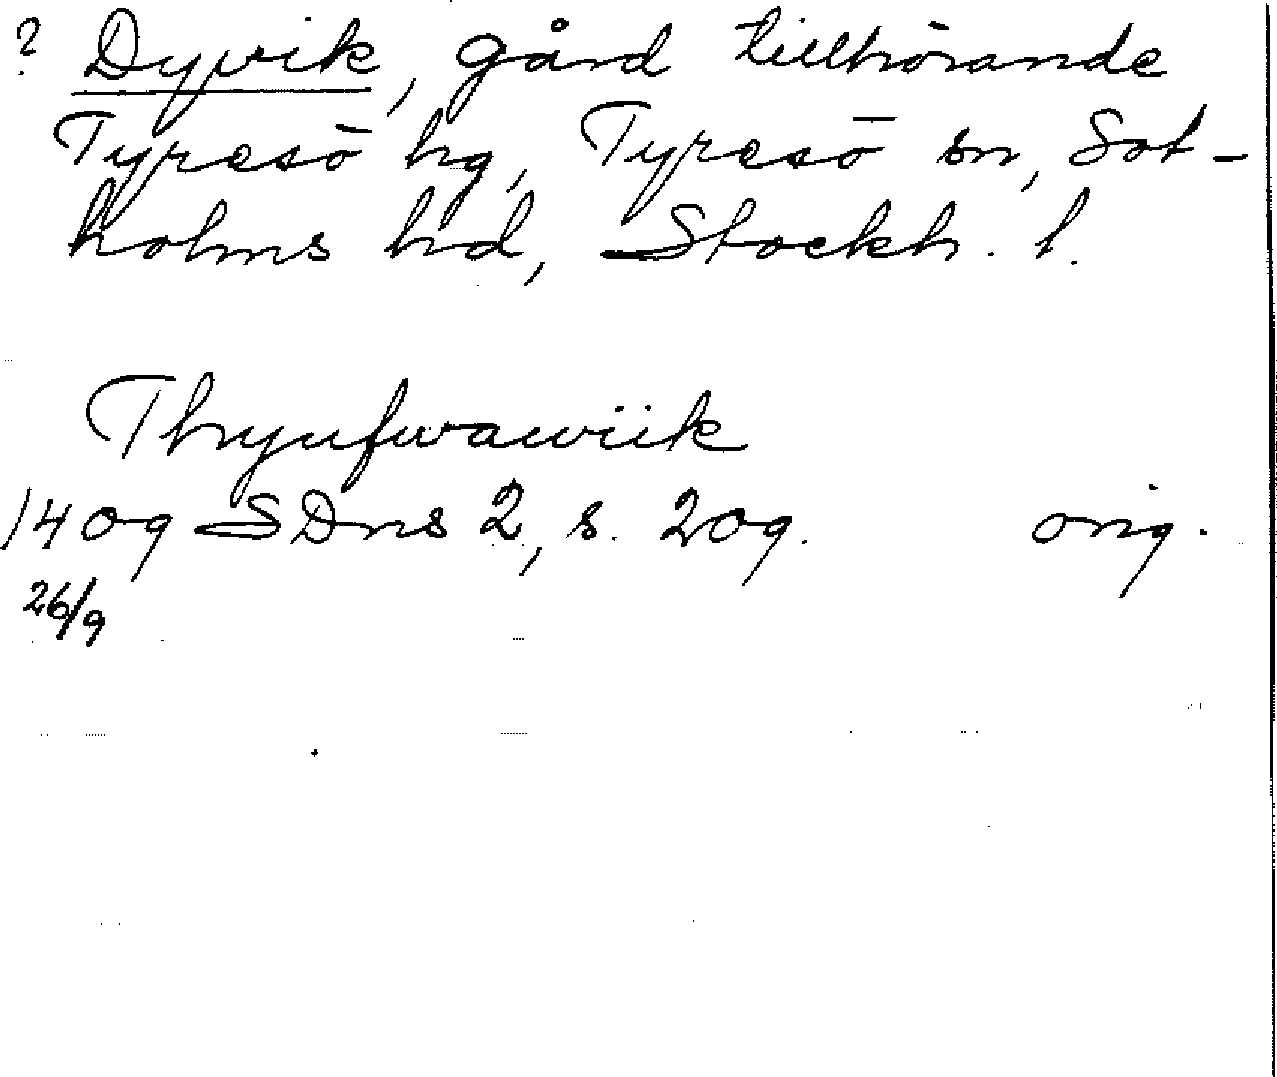 ? Dyvik, gård tillhörande
Tyresö hg, Tyresö sn, Sot-
holms hd, Stockh. l.
Thyufwawiik
1409 SDns 2, s. 209. orig.
26/9